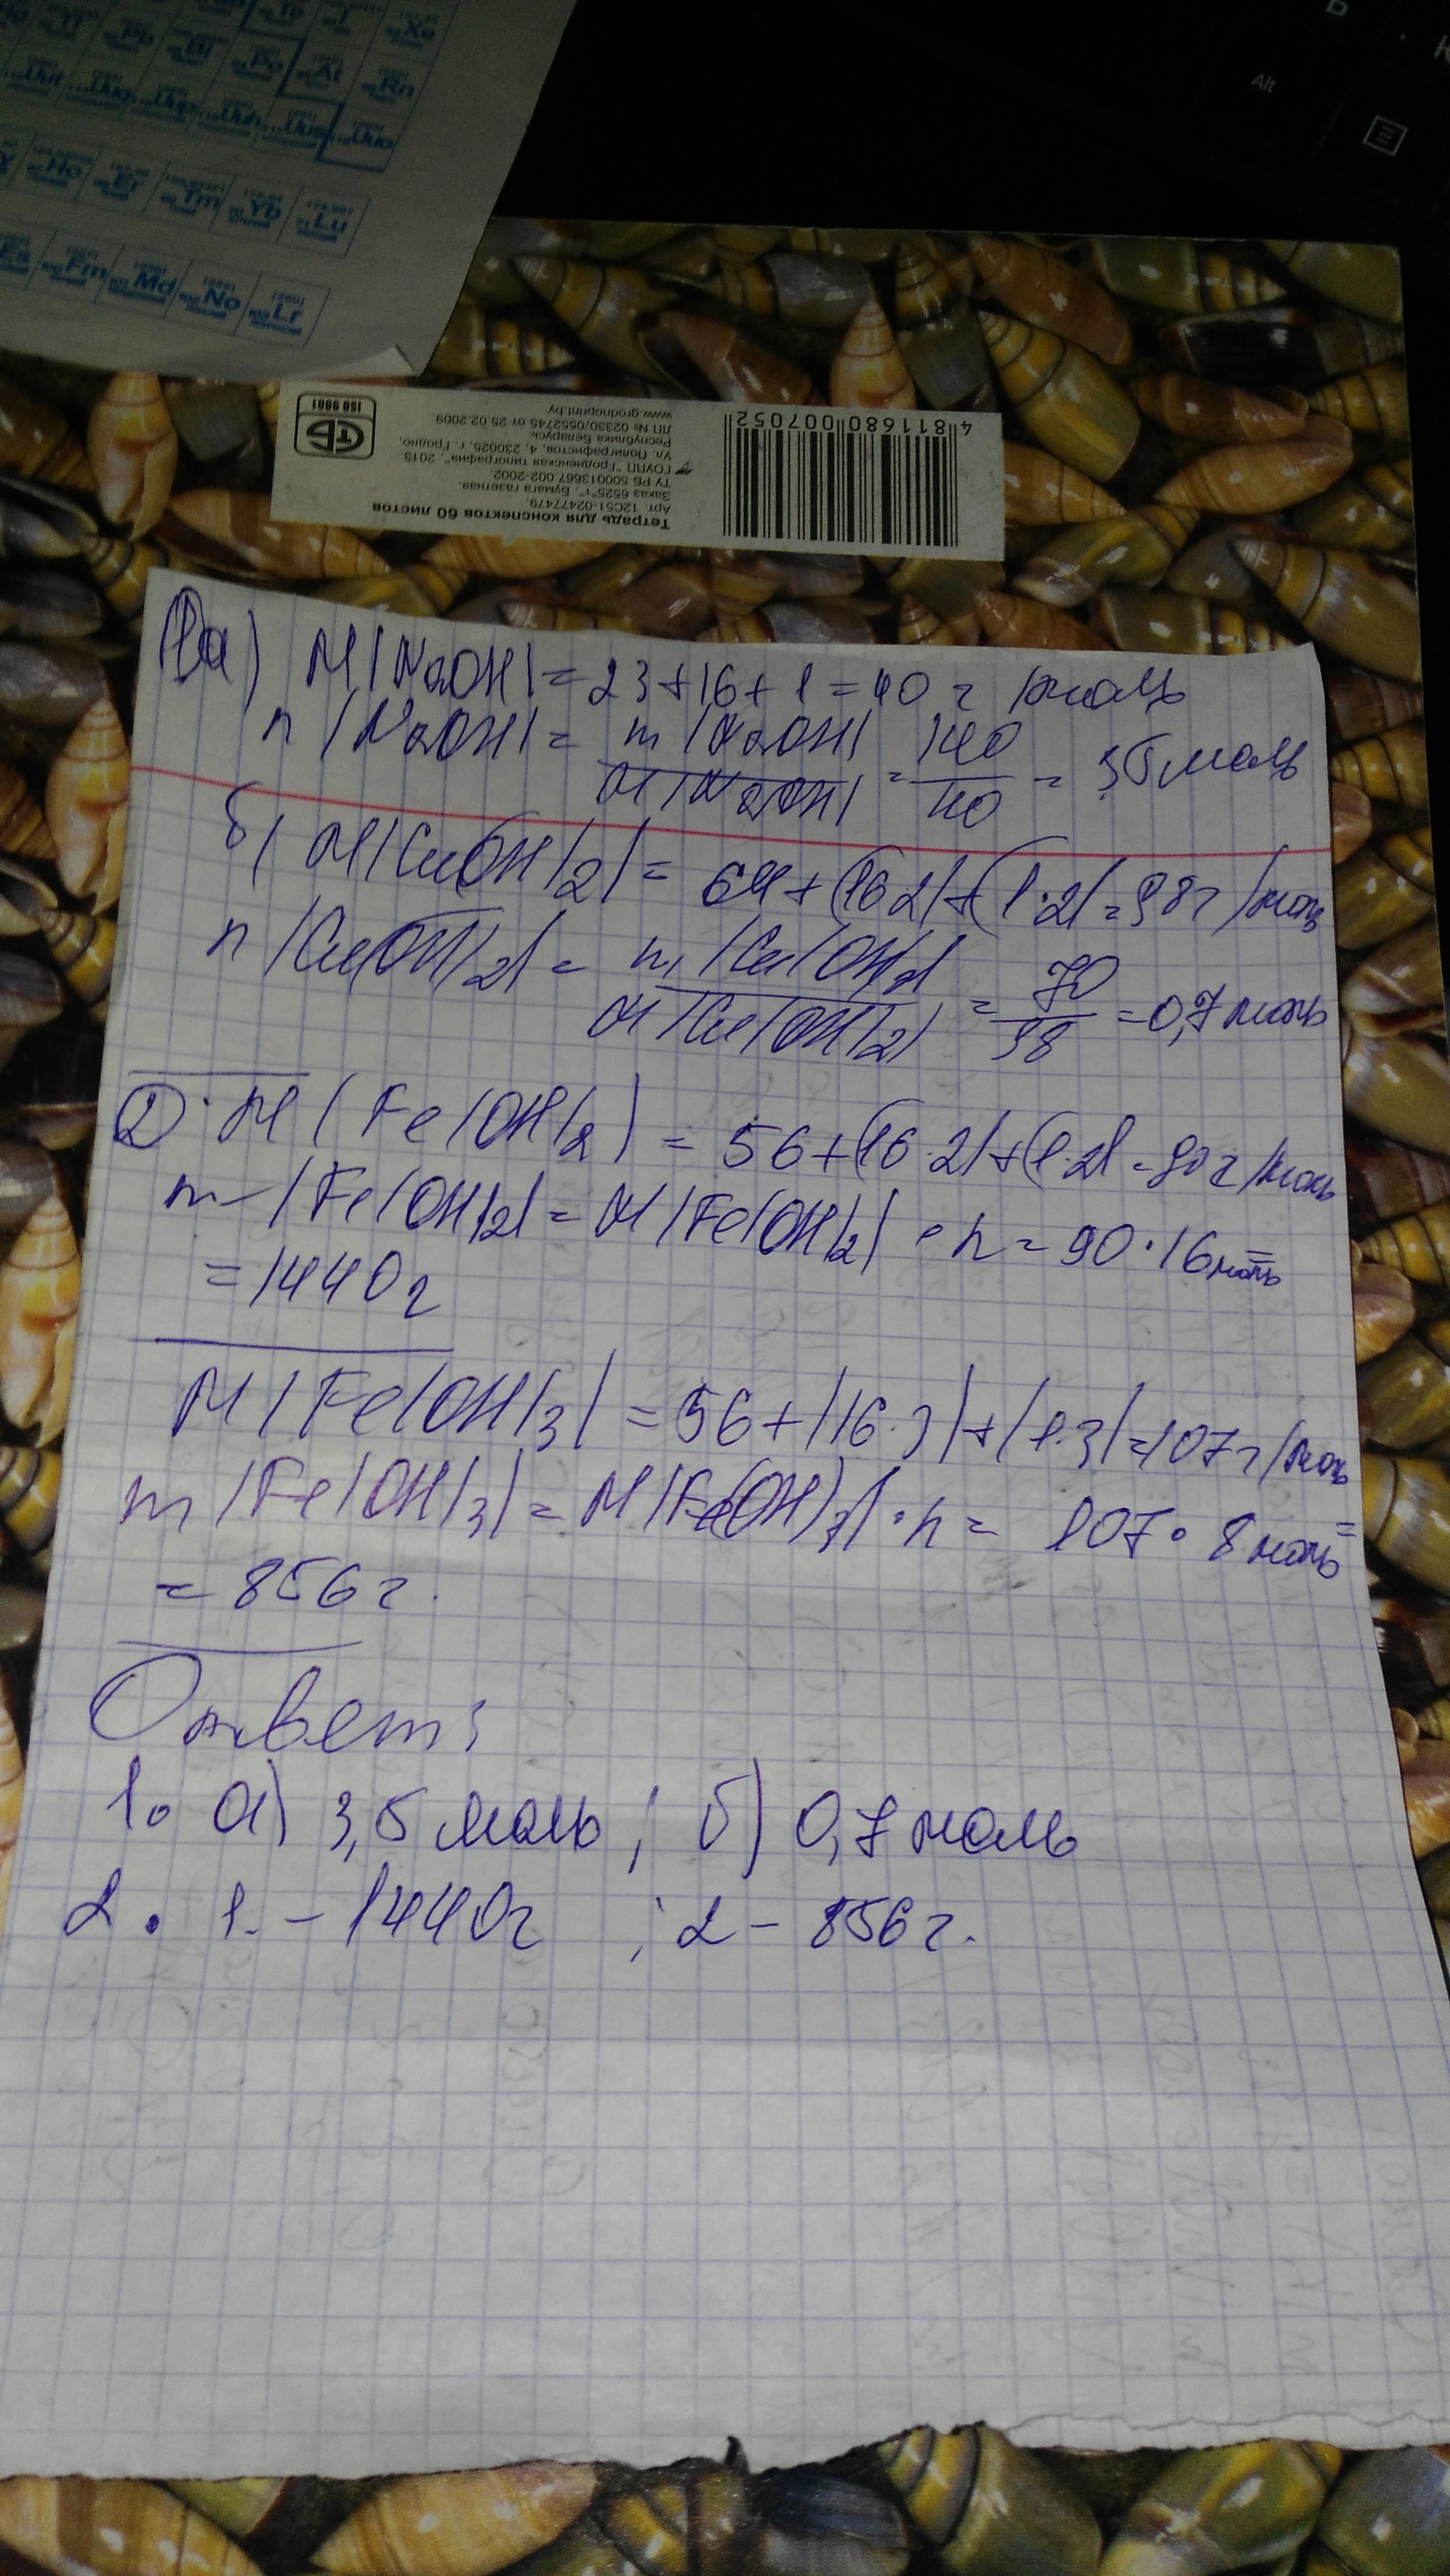 Po
At
Rn
Xe
Uuh
Uus
Uuo
Ho
Er
Tm
Yb
Lu
Es
Fm
Md
No
Lr
Alt
ISO 9001
Тетрадь для конспектов 60 листов
Арт. 12С51-02477479.
Заказ 6525"т" Бумага газетная.
ТУ РБ 500013667.002-2002.
ГОУПП "Гродненская типография", 2013.
Ул. Полиграфистов, 4, 230025, г. Гродно,
Республика Беларусь.
ЛП № 02330/0552745 от 25.02.2009
www.grodnoprint.by
4 811680 007052
1 a) M(NaOH) = 23+16+1 = 40 г/моль
n(NaOH) = m(NaOH) / M(NaOH) = 140 / 40 = 3,5 моль
б) M(Cu(OH)2) = 64+(16·2)+(1·2) = 98 г/моль
n(Cu(OH)2) = m(Cu(OH)2) / M(Cu(OH)2) = 70 / 98 = 0,7 моль
2. M(Fe(OH)2) = 56+(16·2)+(1·2) = 90 г/моль
m(Fe(OH)2) = M(Fe(OH)2) · n = 90·16 моль =
= 1440 г
M(Fe(OH)3) = 56+(16·3)+(1·3) = 107 г/моль
m(Fe(OH)3) = M(Fe(OH)3) · n = 107 · 8 моль =
= 856 г.
Ответ:
1. а) 3,5 моль ; б) 0,7 моль
2. 1. – 1440 г ; 2 – 856 г.